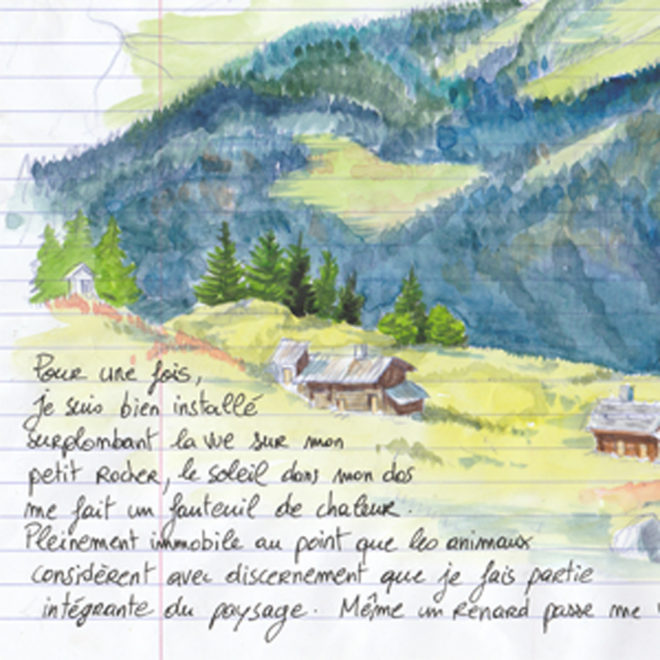 Pour une fois,
je suis bien installé
surplombant la vue sur mon
petit Rocher, le soleil dans mon dos
me fait un fauteuil de chaleur.
Pleinement immobile au point que les animaux
considèrent avec discernement que je fais partie
intégrante du paysage. Même un Renard passe me